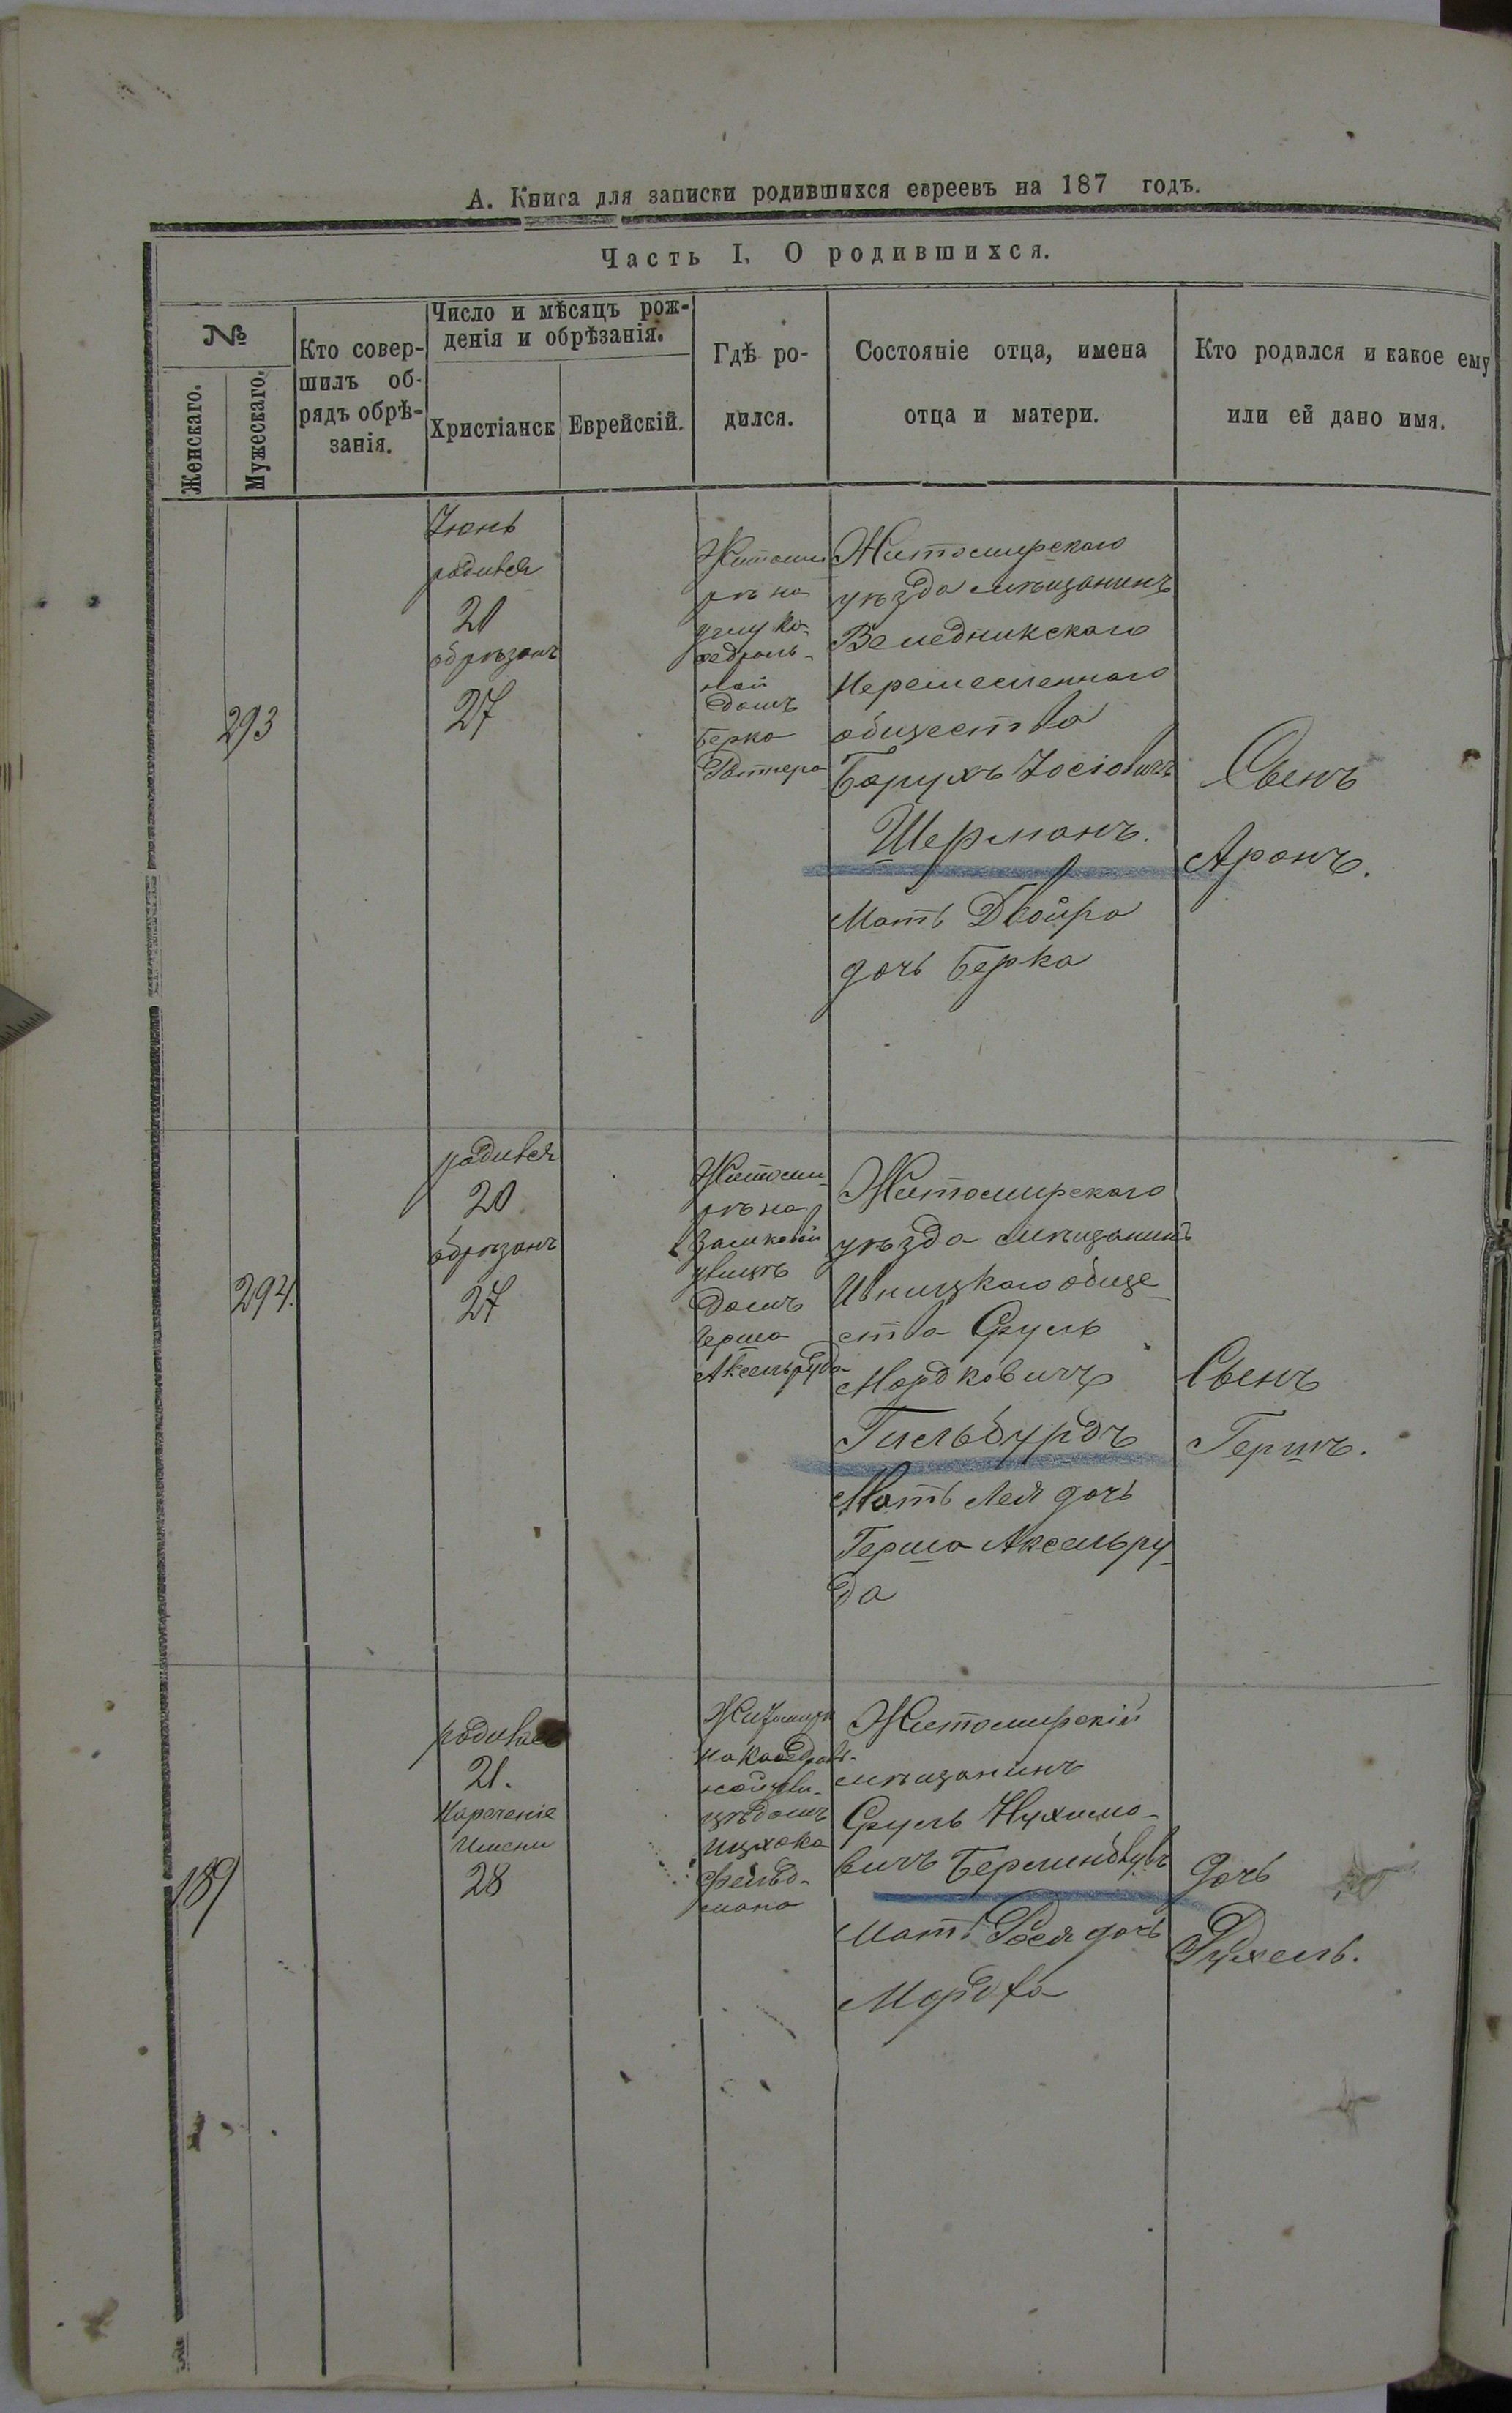 А. Книга для записки родившихся евреевъ на 187 годъ.
Часть I. О родившихся.
№
Женскаго.
Мужескаго.
Кто совер-
шилъ об-
рядъ обрѣ-
занія.
Число и мѣсяцъ рож-
денія и обрѣзанія.
Христіанск
Еврейскій.
Гдѣ ро-
дился.
Состояніе отца, имена
отца и матери.
Кто родился и какое ему
или ей дано имя.
293
Іюнь
родився
20
обрѣзанъ
27
Житоми
рѣ на
улиу Ка-
ѳедраль-
ной
домъ
Берка
Житомирскаго
уѣзда мѣщанинъ
Веледникскаго
общества
Барухъ Іосіовичъ
Шерманъ.
Мать Двойра
дочь Берка
Сынъ
Аронъ.
294.
родився
20
обрѣзанъ
27
Житоми
рѣ на
Замковой
улицѣ
домъ
Герша
Аксельруда
Житомирскаго
уѣзда мѣщанинъ
Ивницкаго обще
ства Сруль
Мордковичъ
Гильбурдъ
Мать Лея дочь
Герша Аксельру
да
Сынъ
Гершъ.
189
21.
Нареченіе
имени
28
на Каѳедраль-
ной ули-
цѣ домъ
Ицхока
Фельд-
мана
Житомирскій
мѣщанинъ
Сруль Нухимо-
вичъ
Мать Рося дочь
Мордка
Дочь
Рухель.